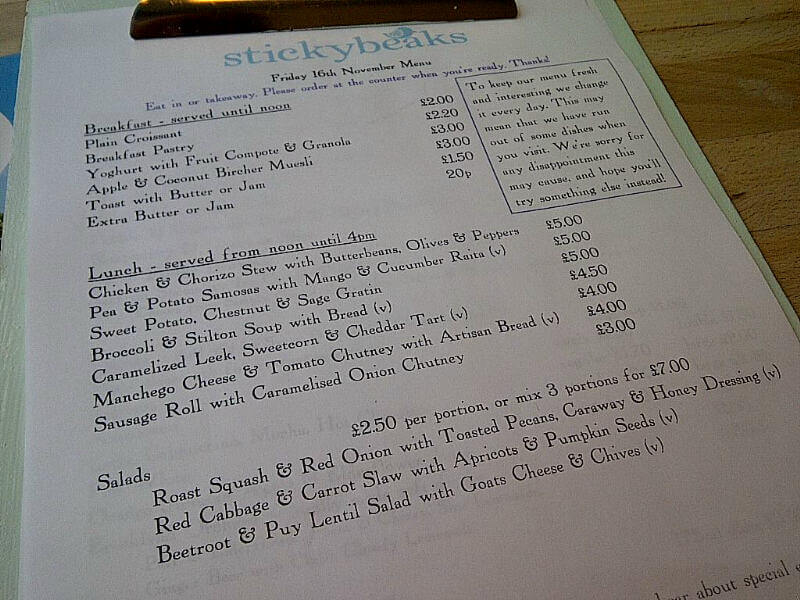 stickybeaks
Friday 16th November Menu
Eat in or takeaway. Please order at the counter when you're ready. Thanks!
Breakfast - served until noon
Plain Croissant £2.00
Breakfast Pastry £2.20
Yoghurt with Fruit Compote & Granola £3.00
Apple & Coconut Bircher Muesli £3.00
Toast with Butter or Jam £1.50
Extra Butter or Jam 20p
To keep our menu fresh
and interesting we change
it every day. This may
mean that we have run
out of some dishes when
you visit. We're sorry for
any disappointment this
may cause, and hope you'll
try something else instead!
Lunch - served from noon until 4pm
Chicken & Chorizo Stew with Butterbeans, Olives & Peppers £5.00
Pea & Potato Samosas with Mango & Cucumber Raita (v) £5.00
Sweet Potato, Chestnut & Sage Gratin £5.00
Broccoli & Stilton Soup with Bread (v) £4.50
Caramelized Leek, Sweetcorn & Cheddar Tart (v) £4.00
Manchego Cheese & Tomato Chutney with Artisan Bread (v) £4.00
Sausage Roll with Caramelised Onion Chutney £3.00
Salads £2.50 per portion, or mix 3 portions for £7.00
Roast Squash & Red Onion with Toasted Pecans, Caraway & Honey Dressing (v)
Red Cabbage & Carrot Slaw with Apricots & Pumpkin Seeds (v)
Beetroot & Puy Lentil Salad with Goats Cheese & Chives (v)
about special